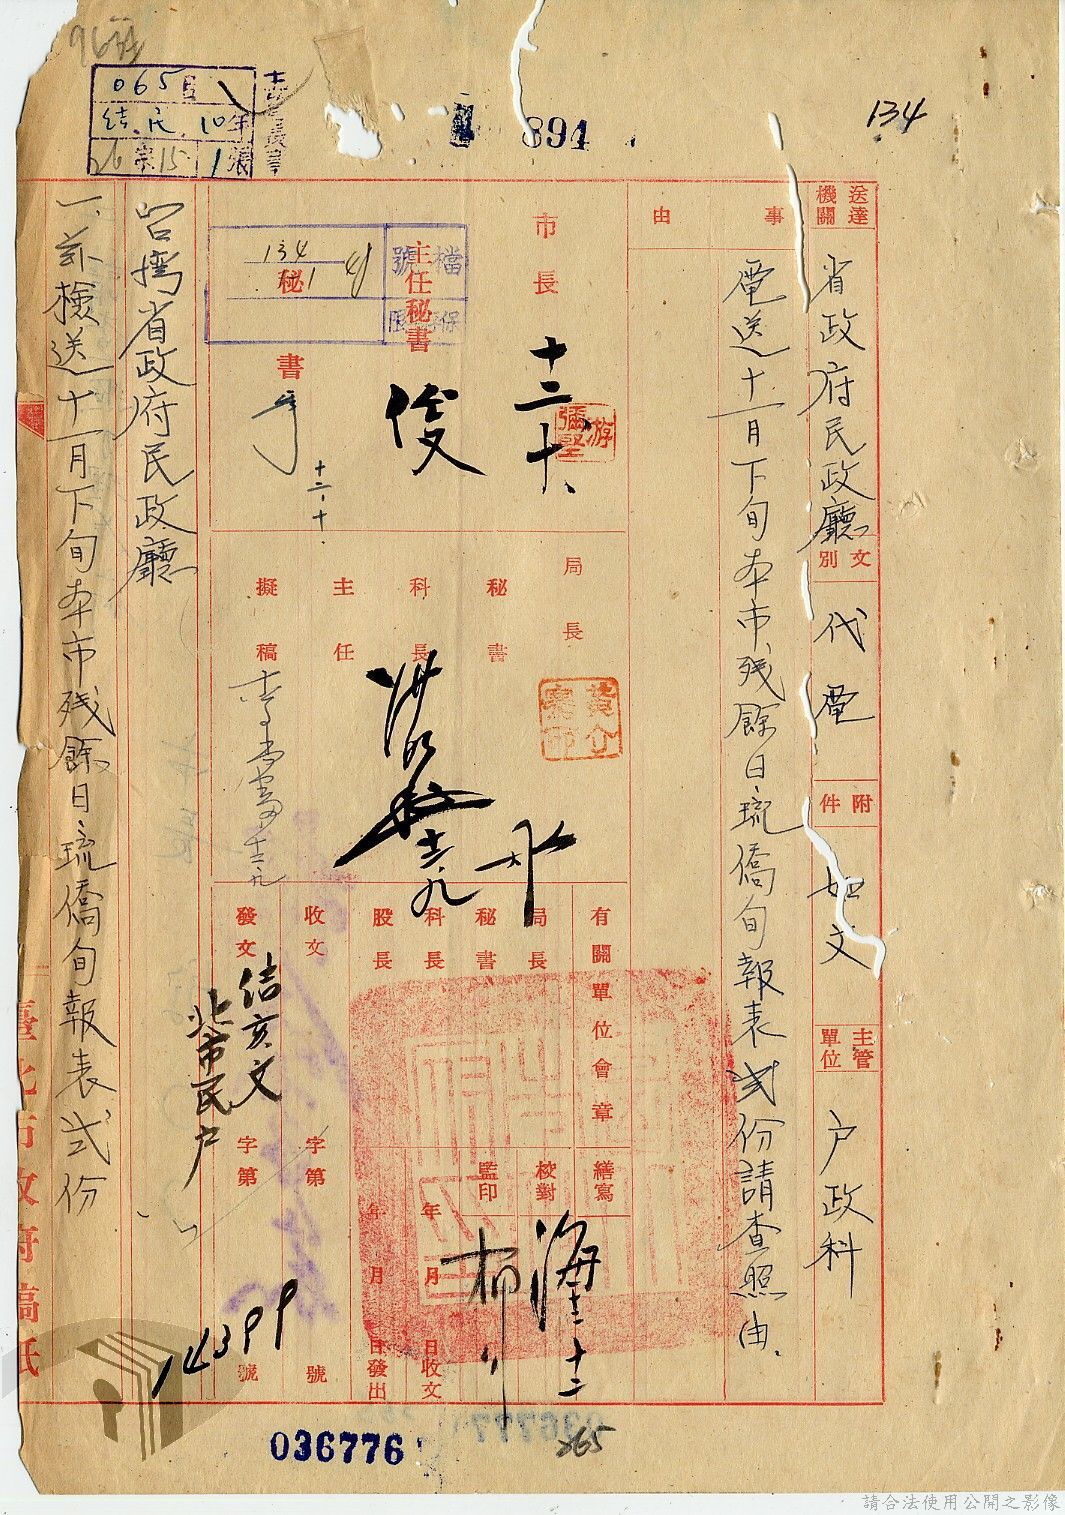 134
894
065
10年
26宗15
1張
送達機關
省政府民政廳
文別
代電
附件
如文
主管單位
戶政科
事由
電送十一月下旬本市残餘日琉僑旬報表弍份請查照由、
市長
十二、十、
游彌堅
主任秘書
俊
秘書
十二、十
檔號
134
局長
黃介騫印
秘書
科長
主任
擬稿
十二、九
十二、九
有關單位會章
局長
秘書
科長
股長
收文
字第
號
發文
佳亥文
北市民戶
字第
14399
號
繕寫
校對
監印
海
十二
柳
年月日收文
年月日發出
台灣省政府民政廳
一、茲檢送十一月下旬本市残餘日琉僑旬報表弍份
臺北市政府稿紙
036776
036777
365
請合法使用公開之影像